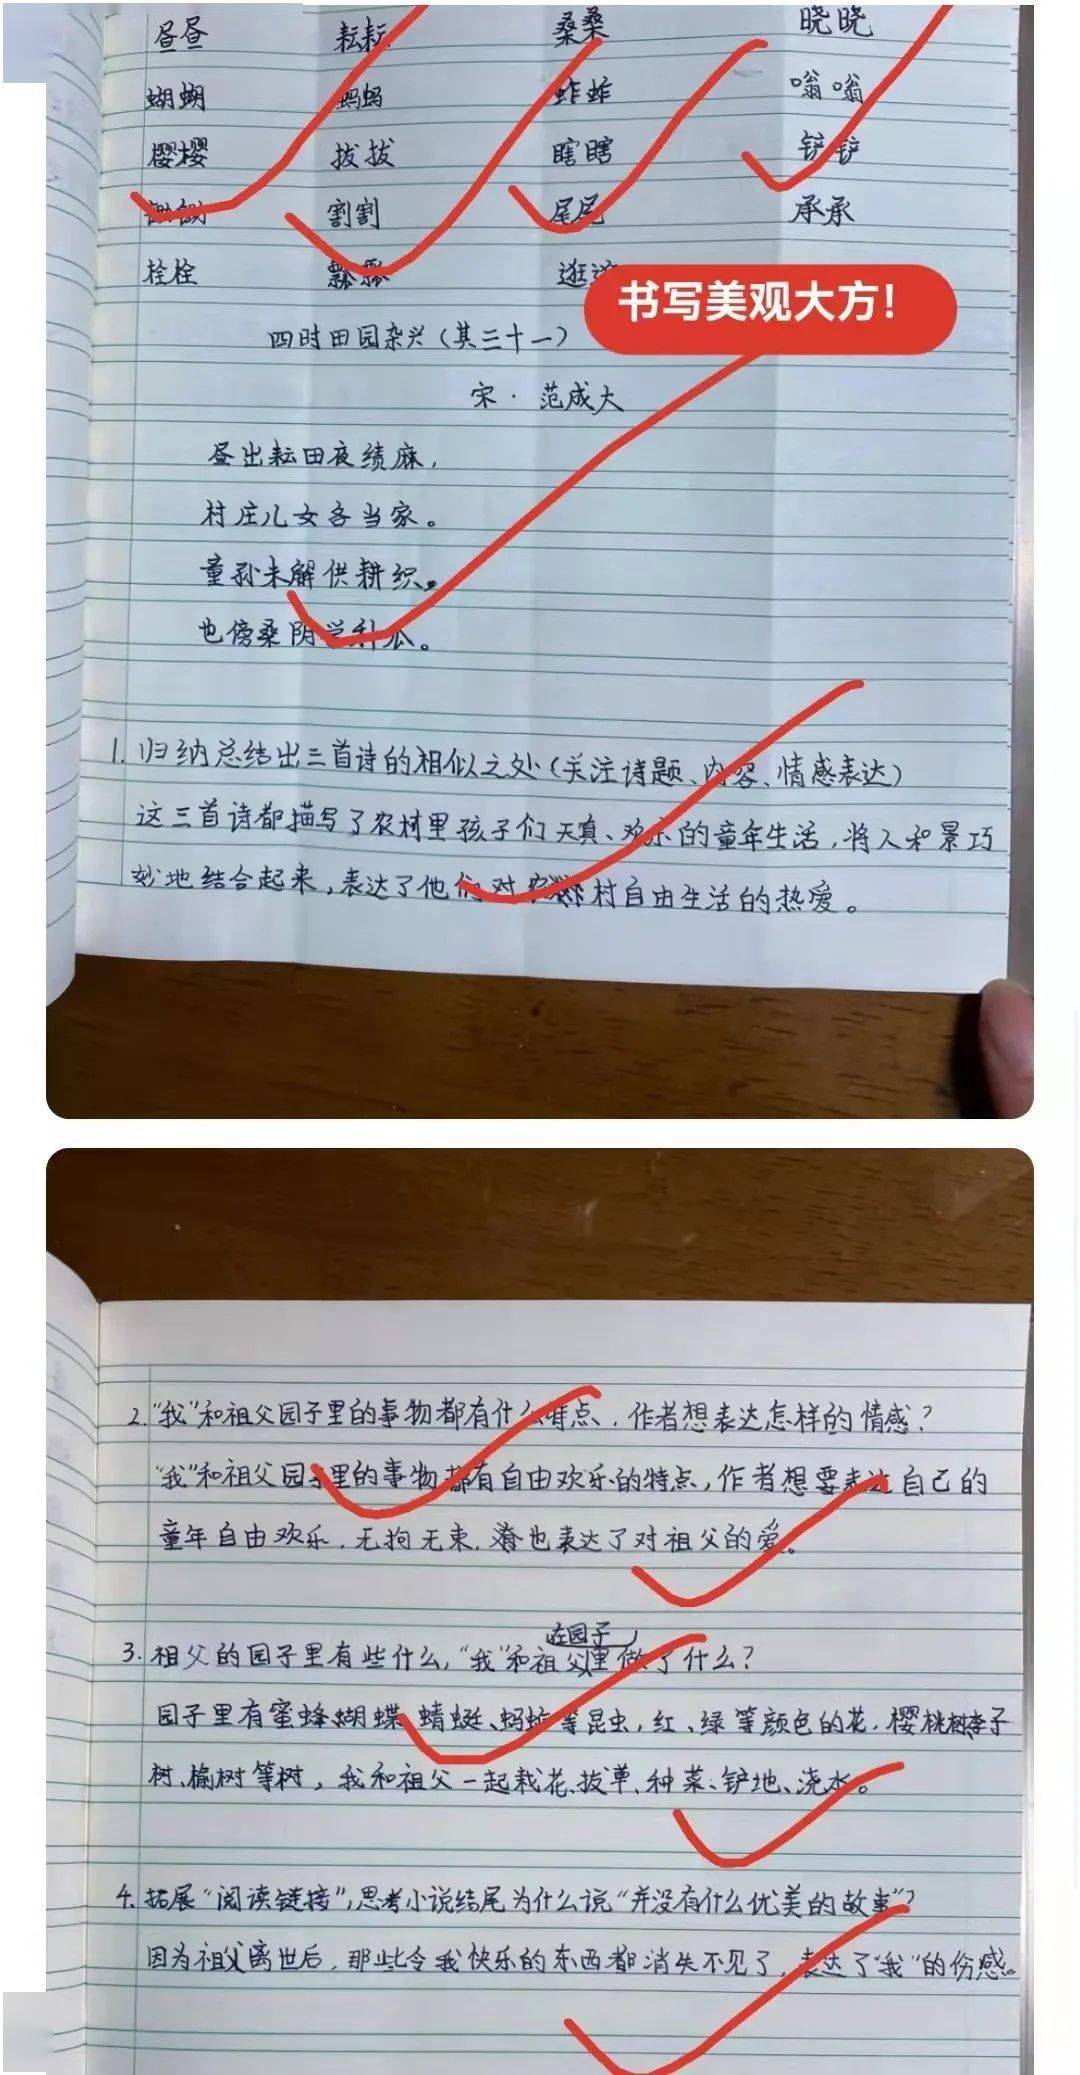 昼昼 耘耘 桑桑 晓晓
蝴蝴 蚂蚂 蚱蚱 嗡嗡
樱樱 拔拔 瞎瞎 铲铲
割割 尾尾 承承
拴拴 瓢瓢 逛逛
书写美观大方!
四时田园杂兴(其三十一)
宋·范成大
昼出耘田夜绩麻,
村庄儿女各当家。
童孙未解供耕织。
也傍桑阴学种瓜。
1. 归纳总结出三首诗的相似之处(关注诗题、内容、情感表达)
这三首诗都描写了农村里孩子们天真、欢乐的童年生活,将人和景巧
妙地结合起来,表达了他们对农村自由生活的热爱。
2. “我”和祖父园子里的事物都有什么特点,作者想表达怎样的情感?
“我”和祖父园子里的事物都有自由欢乐的特点,作者想要表达自己的
童年自由欢乐,无拘无束,也表达了对祖父的爱。
在园子
3. 祖父的园子里有些什么,“我”和祖父里做了什么?
园子里有蜜蜂、蝴蝶、蜻蜓、蚂蚱等昆虫,红、绿等颜色的花,樱桃树、李子
树、榆树等树,我和祖父一起栽花、拔草、种菜、铲地、浇水。
4. 拓展“阅读链接”,思考小说结尾为什么说“并没有什么优美的故事”?
因为祖父离世后,那些令我快乐的东西都消失不见了,表达了“我”的伤感。